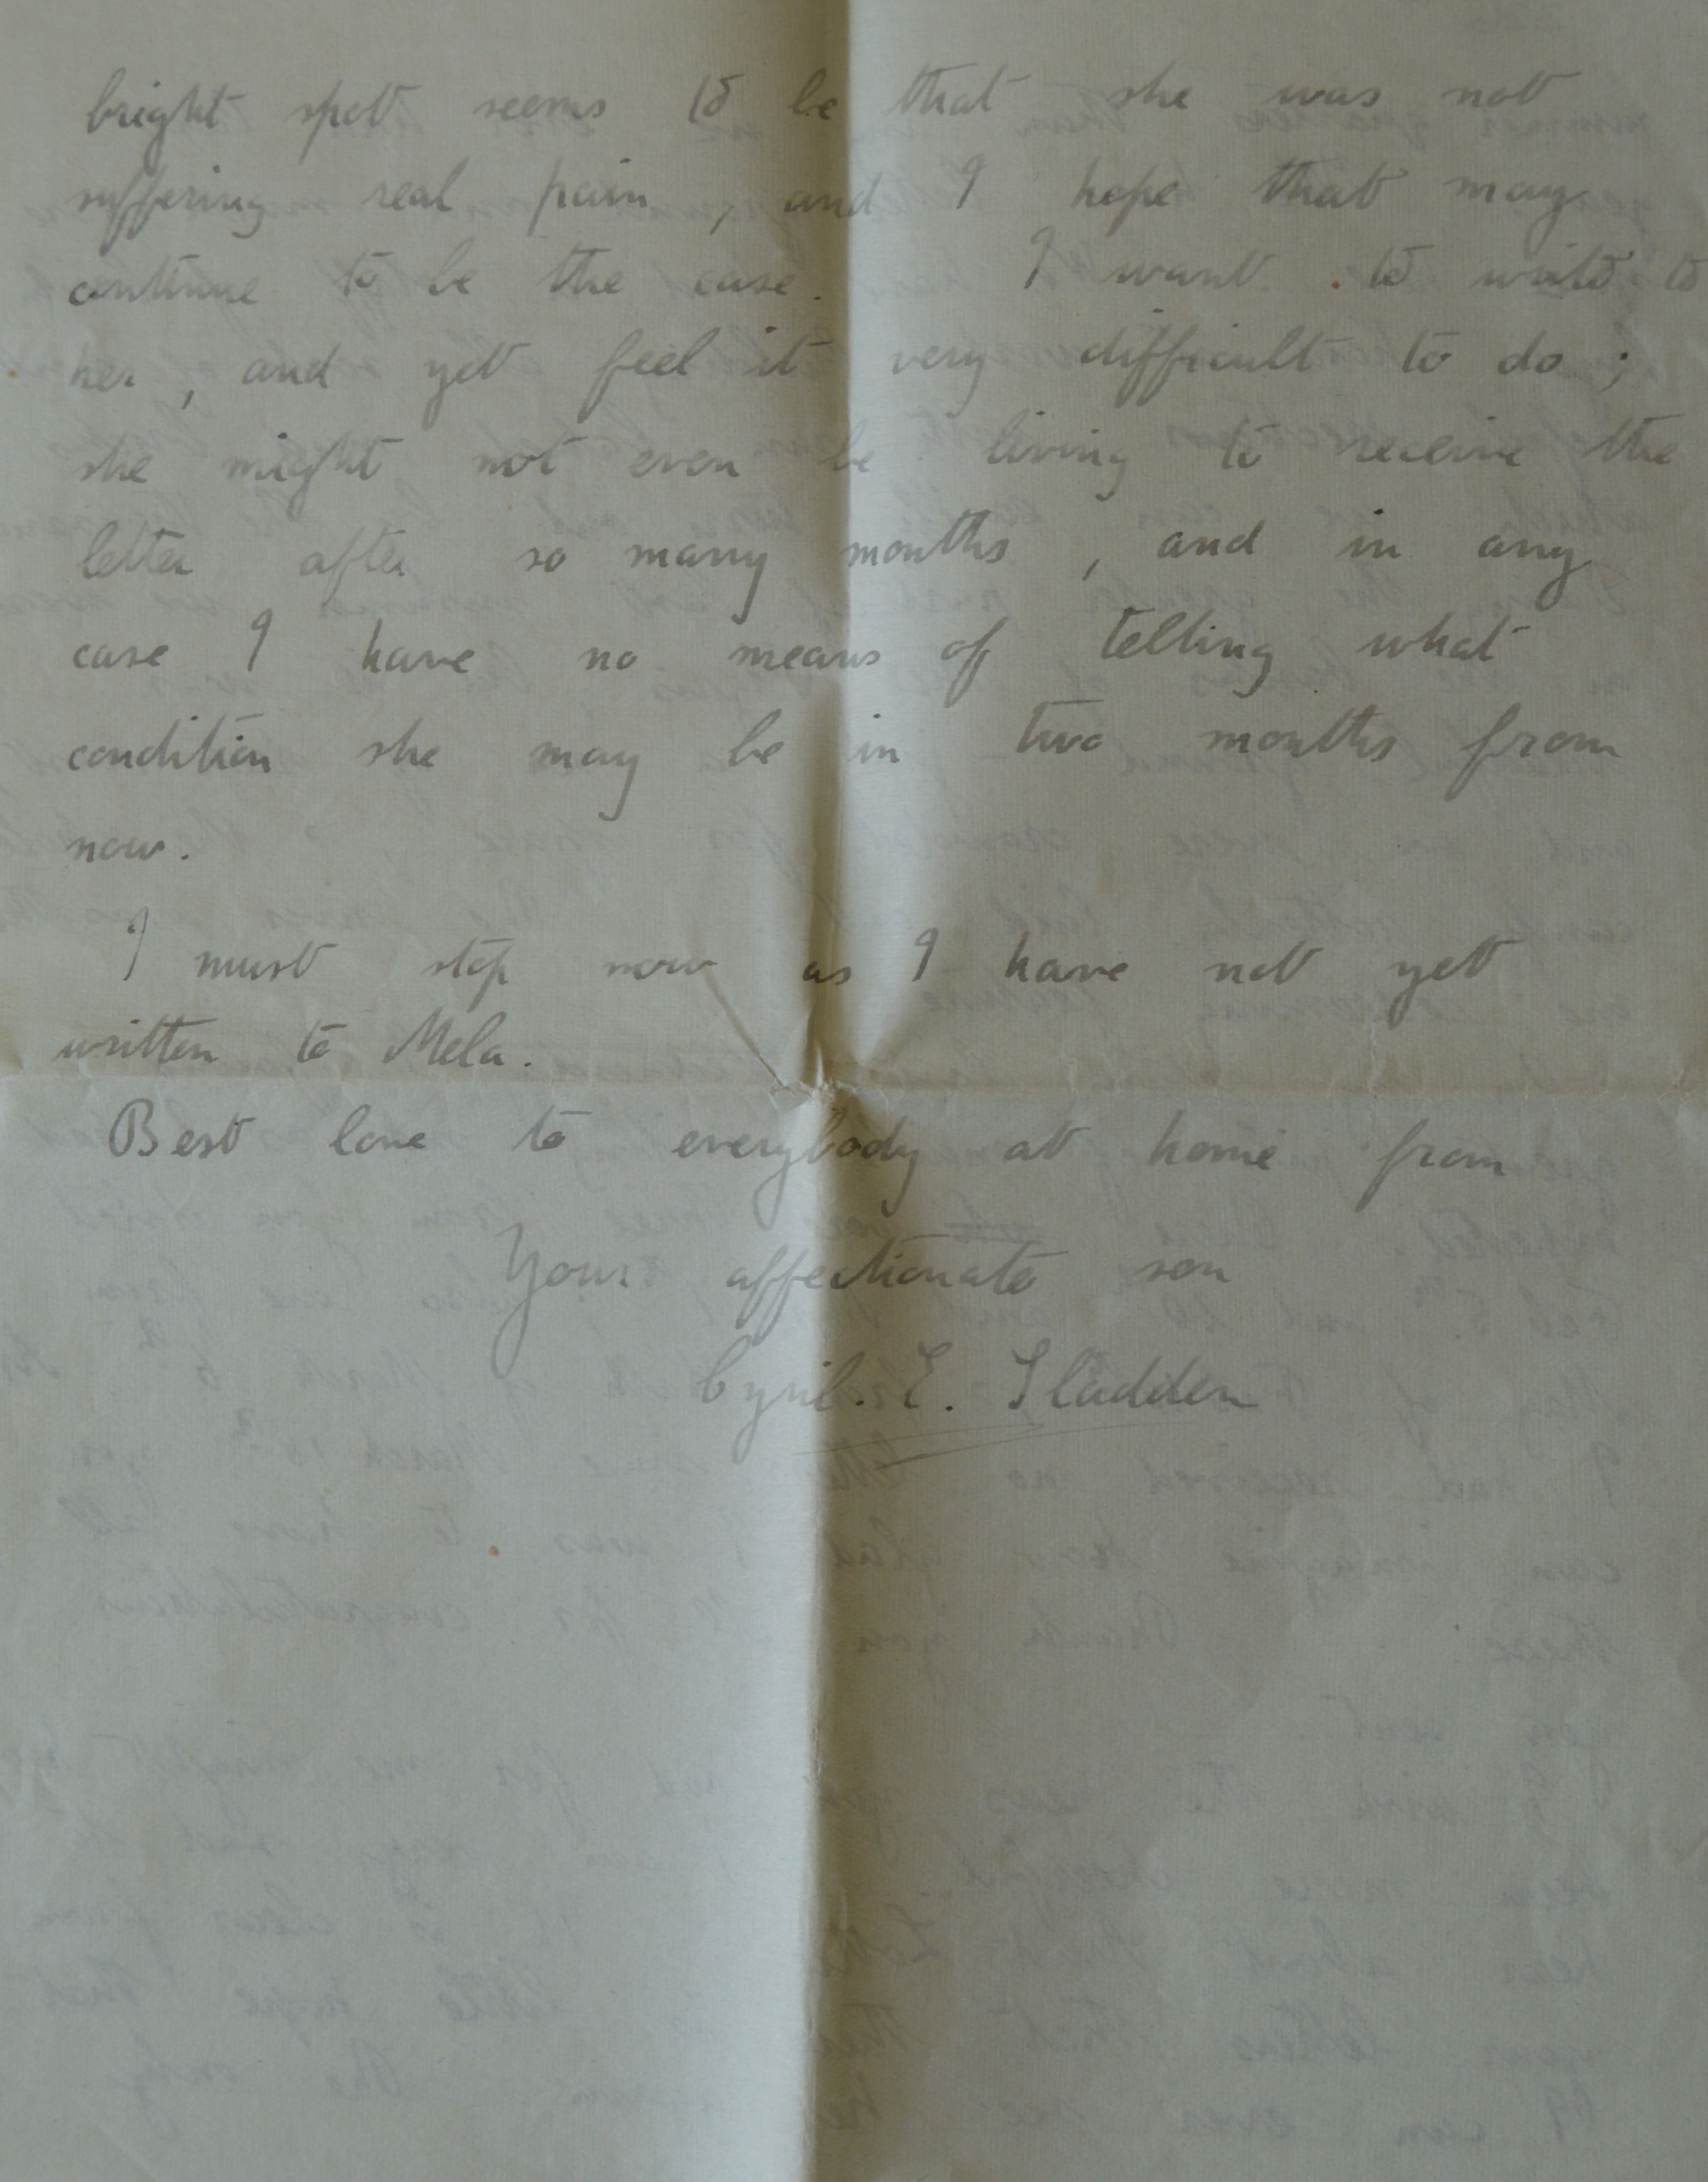 bright spot seems to be that she was not
suffering real pain, and I hope that may
continue to be the case. I want to write to
her, and yet feel it very difficult to do;
she might not even be living to receive the
letter after so many months, and in any
case I have no means of telling what
condition she may be in two months from
now.
I must stop now as I have not yet
written to Mela.
Best love to everybody at home from
Your affectionate son
Cyril. E. Sladden